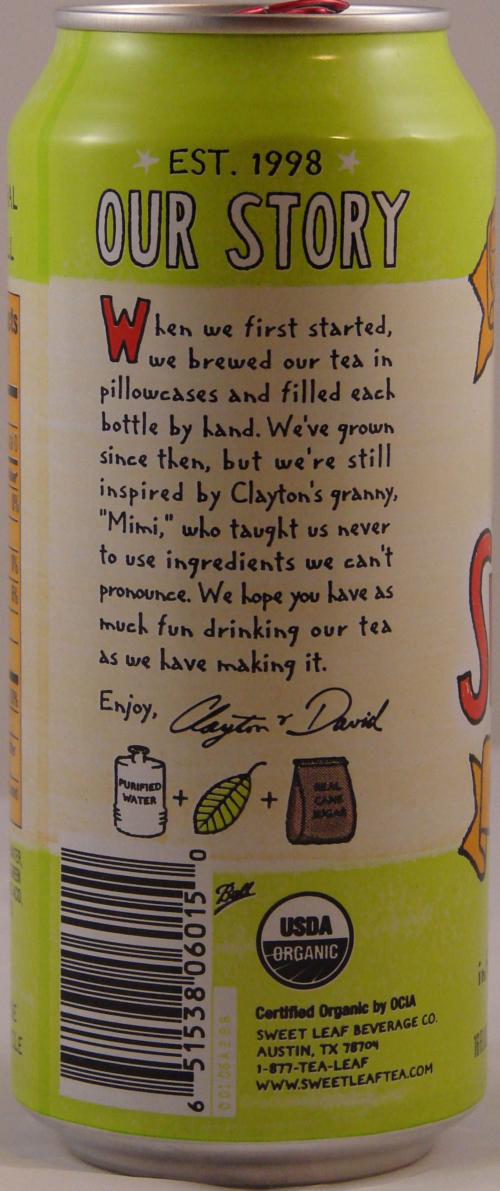 EST. 1998
OUR STORY
When we first started,
we brewed our tea in
pillowcases and filled each
bottle by hand. We've grown
since then, but we're still
inspired by Clayton's granny,
"Mimi," who taught us never
to use ingredients we can't
pronounce. We hope you have as
much fun drinking our tea
as we have making it.
Enjoy, Clayton & David
PURIFIED
WATER
+
+
REAL
CANE
SUGAR
Ball
6 51538 06015 0
USDA
ORGANIC
Certified Organic by OCIA
SWEET LEAF BEVERAGE CO.
AUSTIN, TX 78704
1-877-TEA-LEAF
WWW.SWEETLEAFTEA.COM